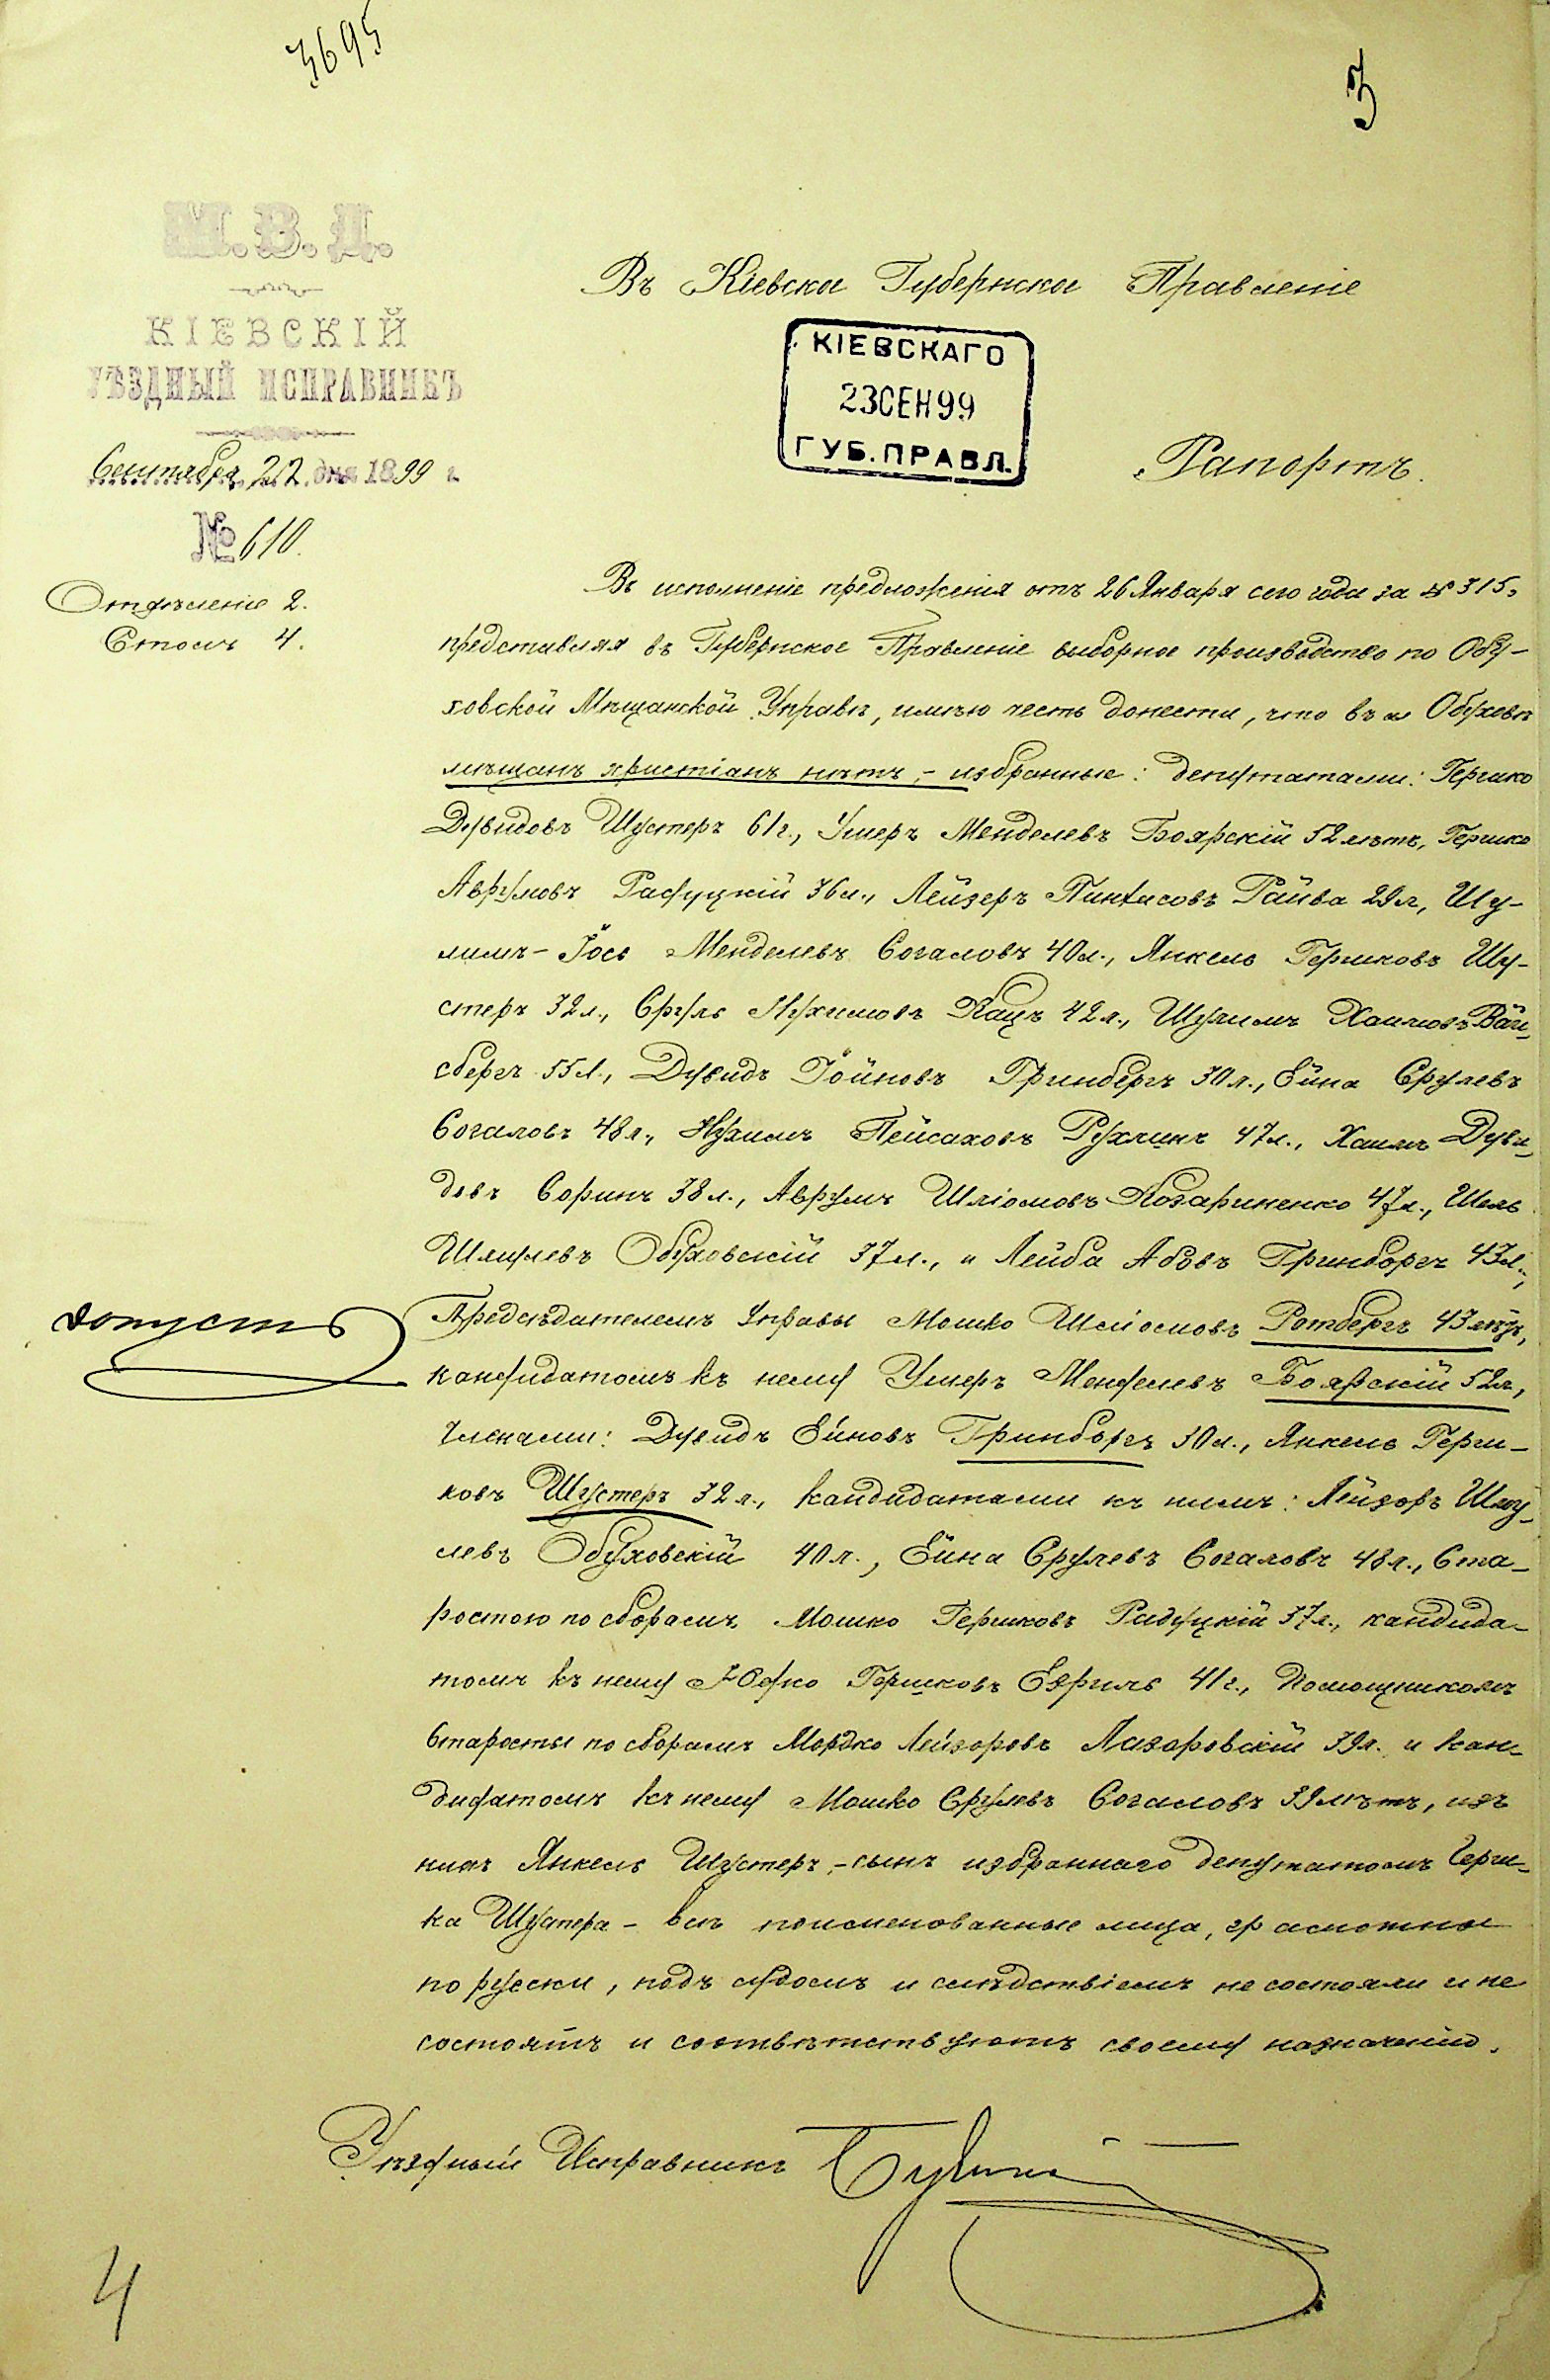 3695
3
М.В.Д.
КІЕВСКІЙ
УѢЗДНЫЙ ИСПРАВНИКЪ
Сентября 22 дня 1899 г.
№ 610.
Отдѣленіе 2.
Столъ 4.
Въ Кіевское Губернское Правленіе
КІЕВСКАГО
23 СЕН 99
ГУБ. ПРАВЛ.
Рапортъ.
Въ исполненіе предложенія отъ 26 Января сего года за № 315,
представляя въ Губернское Правленіе выборное производство по Обу-
ховской Мѣщанской Управѣ, имѣю честь донести, что въ м. Обуховѣ
мѣщанъ христіанъ нѣтъ, - избранные: депутатами: Гершко
Дувидовъ Шустеръ 61 г., Ушеръ Менделевъ Боярскій 52 лѣтъ, Гершко
Аврумовъ Радуцкій 36 л., Лейзеръ Пинхасовъ Райва 29 л., Шу-
лимъ-Іось Менделевъ Согаловъ 40 л., Янкель Гершковъ Шу-
стеръ 32 л., Сруль Нухимовъ Кацъ 42 л., Шулимъ Хаимовъ Вай-
сбергъ 55 л., Дувидъ Іойновъ Гринбергъ 30 л., Ейна Срулевъ
Согаловъ 48 л., Нухимъ Пейсаховъ Рухлинъ 47 л., Хаимъ Дуви-
довъ Соринъ 38 л., Аврумъ Шліомовъ Козариненко 47 л., Шель
Шмулевъ Обуховскій 37 л., и Лейба Абовъ Гринборгъ 43 л.,
допустъ
Предсѣдателемъ Управы Мошко Шліомовъ Ротбергъ 43 лѣтъ,
кандидатомъ къ нему Ушеръ Менделевъ Боярскій 52 л.,
Членами: Дувидъ Ейновъ Гринборгъ 30 л., Янкель Герш-
ковъ Шустеръ 32 л., кандидатами къ нимъ: Лейзоръ Шму-
левъ Обуховскій 40 л., Ейна Срулевъ Согаловъ 48 л., Ста-
ростою по сборамъ Мошко Гершковъ Радуцкій 37 л., кандида-
томъ къ нему Гершковъ 41 г., Помощникомъ
Старосты по сборамъ Мордко Лейзоровъ Лазоровскій 39 л. и кан-
дидатомъ къ нему Мошко Срулевъ Согаловъ 39 лѣтъ, изъ
нихъ Янкель Шустеръ, - сынъ избраннаго депутатомъ Герш-
ка Шустера - всѣ поименованные лица, грамотны
по русски, подъ судомъ и слѣдствіемъ не состояли и не
состоятъ и соотвѣтствуютъ своему назначенію.
Уѣздный Исправникъ
4